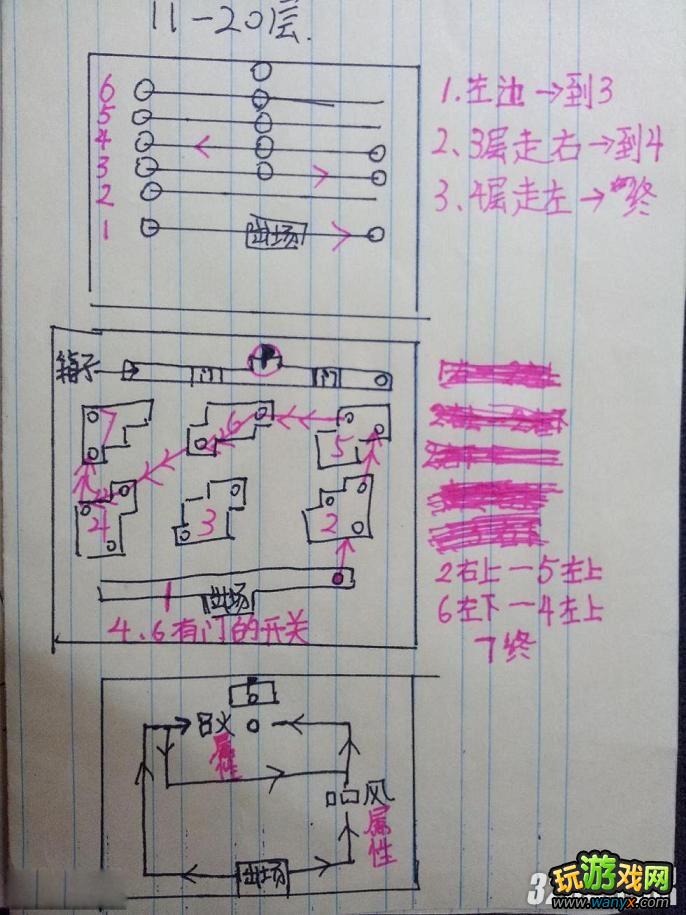 11-20层.
6
5
4
3
2
1
出场
1.左边→到3
2、3层走右→到4
3.4层走左→终
箱子
门
门
7
6
5
4
3
2
1
出场
4、6有门的开关
2右上一5左上
6左下一4左上
7终
火
属性
风
属性
出场
玩游戏网
www.wanyx.com